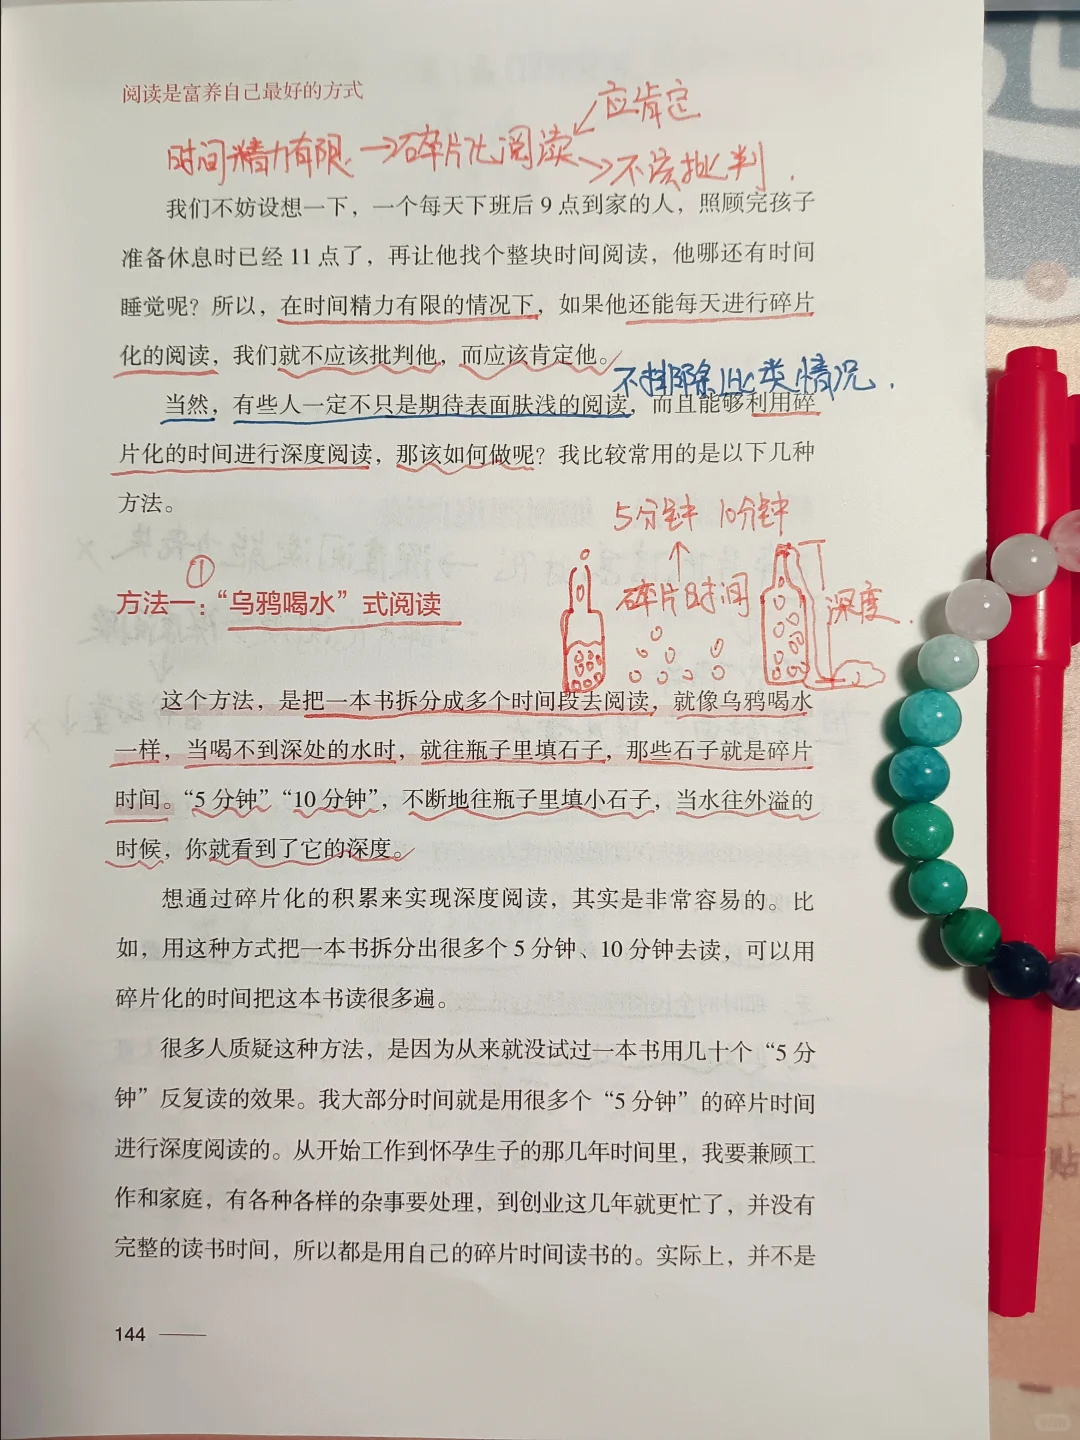 阅读是富养自己最好的方式
应肯定
时间精力有限→碎片化阅读
不该批判.
我们不妨设想一下，一个每天下班后 9 点到家的人，照顾完孩子
准备休息时已经 11 点了，再让他找个整块时间阅读，他哪还有时间
睡觉呢？所以，在时间精力有限的情况下，如果他还能每天进行碎片
化的阅读，我们就不应该批判他，而应该肯定他。
不排除此类情况.
当然，有些人一定不只是期待表面肤浅的阅读，而且能够利用碎
片化的时间进行深度阅读，那该如何做呢？我比较常用的是以下几种
方法。
5分钟 10分钟
①
碎片时间
深度.
方法一：“乌鸦喝水”式阅读
这个方法，是把一本书拆分成多个时间段去阅读，就像乌鸦喝水
一样，当喝不到深处的水时，就往瓶子里填石子，那些石子就是碎片
时间。“5 分钟”“10 分钟”，不断地往瓶子里填小石子，当水往外溢的
时候，你就看到了它的深度。
想通过碎片化的积累来实现深度阅读，其实是非常容易的。比
如，用这种方式把一本书拆分出很多个 5 分钟、10 分钟去读，可以用
碎片化的时间把这本书读很多遍。
很多人质疑这种方法，是因为从来就没试过一本书用几十个“5 分
钟”反复读的效果。我大部分时间就是用很多个“5 分钟”的碎片时间
进行深度阅读的。从开始工作到怀孕生子的那几年时间里，我要兼顾工
作和家庭，有各种各样的杂事要处理，到创业这几年就更忙了，并没有
完整的读书时间，所以都是用自己的碎片时间读书的。实际上，并不是
144